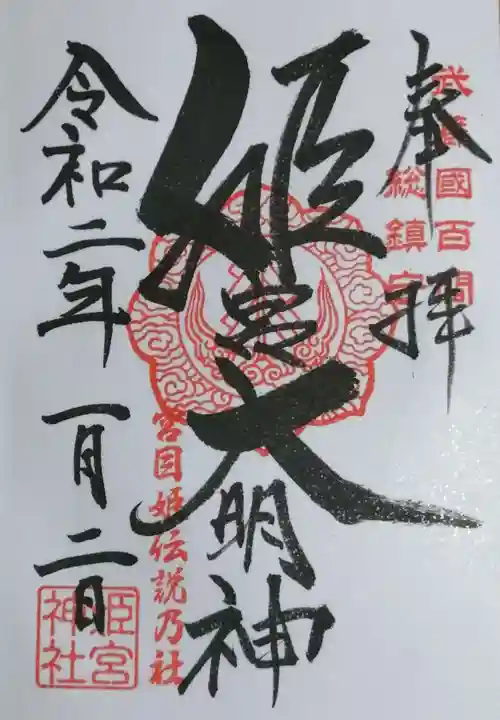 奉拝
武蔵國百間
総鎮守
姫宮大明神
宮目姫伝説乃社
令和二年 一月二日
姫宮
神社